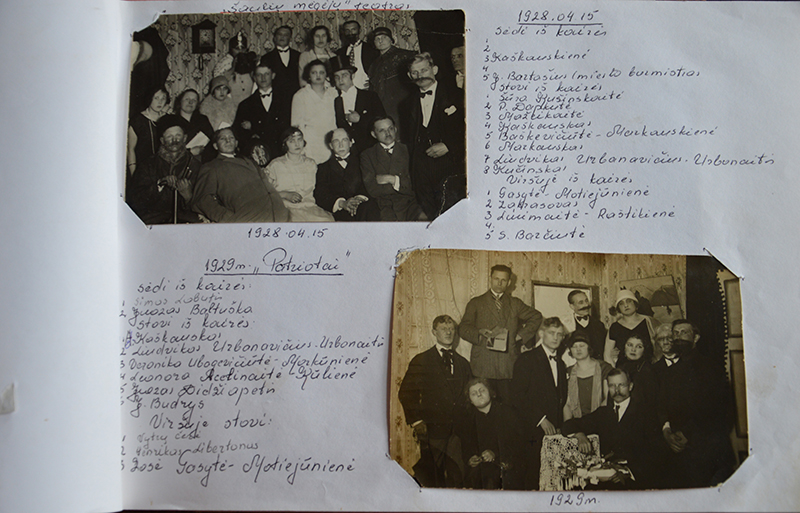 "Šaulių mėgėjų" teatras
1928.04.15
1929m. "Patriotai"
sėdi iš kairės:
1 Simas
2 Juozas Baltuška
Stovi iš kairės:
1 Kaškauskas
2 Liudvikas Urbanavičius-Urbonaitis
3 Veronika Ubogevičiūtė-Markūnienė
4 Leonora Acelinaitė-Kūlienė
5 Juozas Didžiapetris
6 J. Budrys
Viršuje stovi:
1 Vytautas
2 Henrikas Libertonas
3 Zosė Gasytė-Motiejūnienė
1928.04.15
Sėdi iš kairės
1
2
3 Kaškauskienė
4
5 J. Bartašius (miesto burmistras
Stovi iš kairės
1 Sūra Kušinskaitė
2 P. Dapkutė
3 Mažtikaitė
4 Kaškauskas
5 Baškevičiūtė-Markauskienė
6 Markauskas
7 Liudvikas Urbanavičius-Urbonaitis
8 Kučinskas
Viršuje iš kairės
1 Gasytė-Motiejūnienė
2 Zakrasovas
3 Linimaitė-Raštikienė
4
5 S. Barčiutė
1929m.